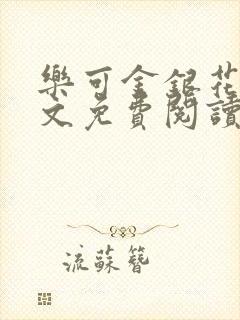 樂可金銀花
文免費閱讀
流蘇簪